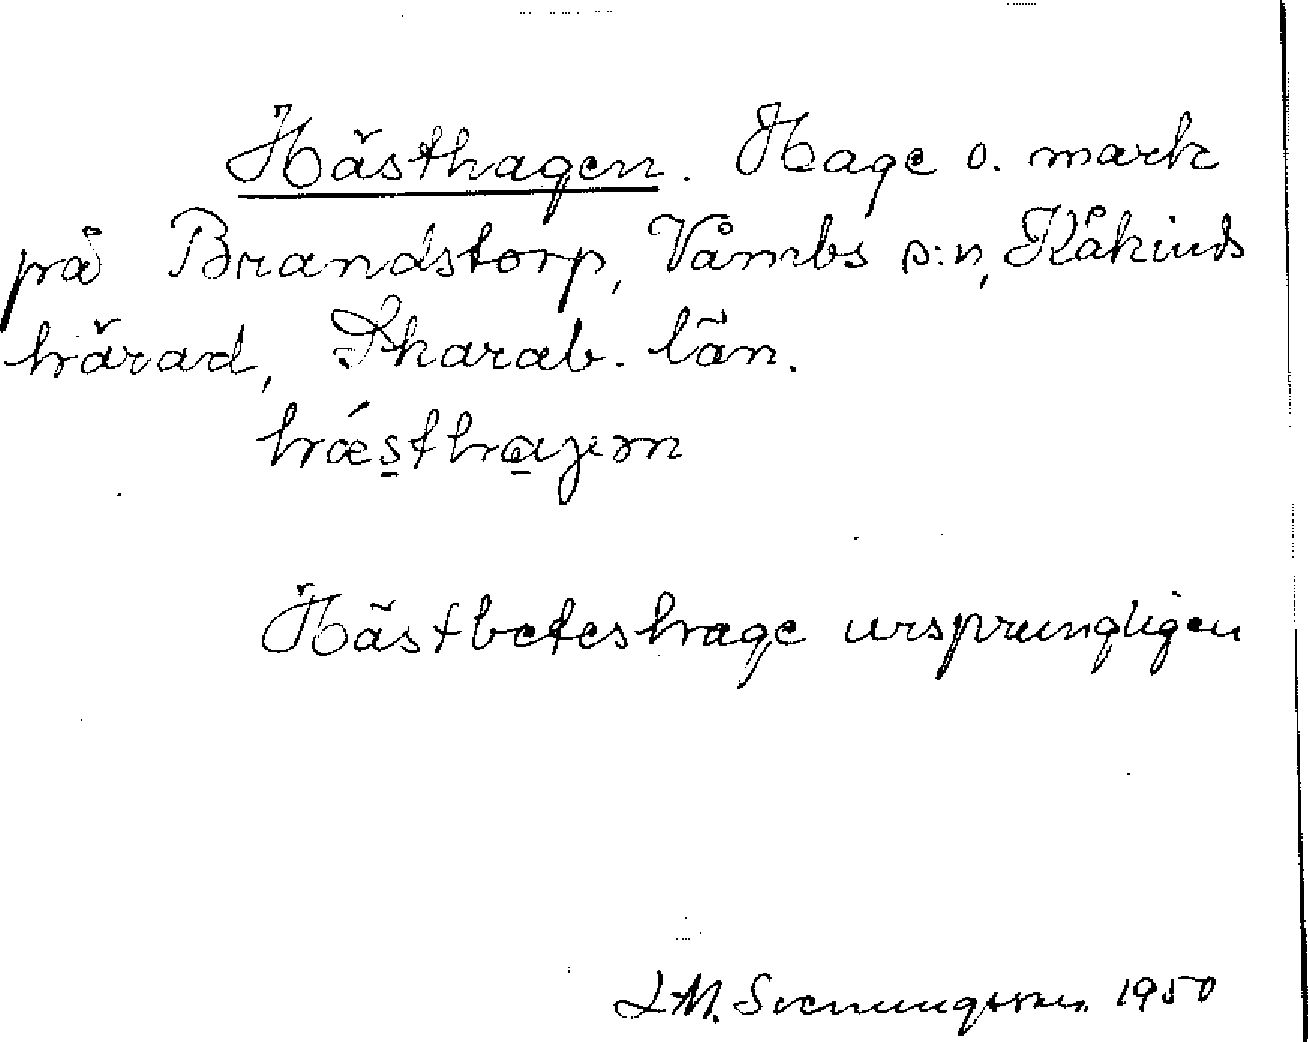 Hästhagen. Hage o. mark
på Brandstorp, Våmbs s:n, Kåkinds
härad, Skarab. län.
hǽsthaγən
Hästbeteshage ursprungligen
L.M. Svenungsson 1950